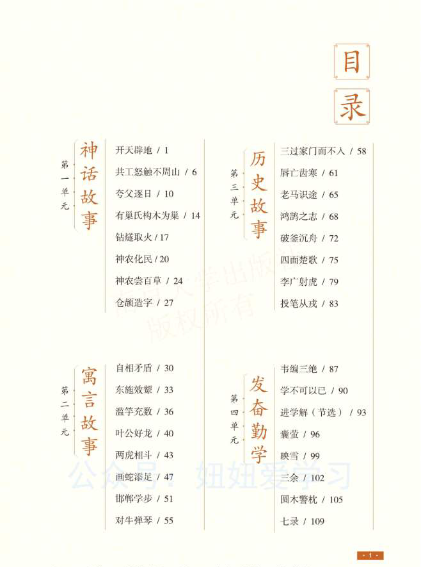 目录
第一单元
神话故事
开天辟地 / 1
共工怒触不周山 / 6
夸父逐日 / 10
有巢氏构木为巢 / 14
钻燧取火 / 17
神农化民 / 20
神农尝百草 / 24
仓颉造字 / 27
第二单元
寓言故事
自相矛盾 / 30
东施效颦 / 33
滥竽充数 / 36
叶公好龙 / 40
两虎相斗 / 43
画蛇添足 / 47
邯郸学步 / 51
对牛弹琴 / 55
第三单元
历史故事
三过家门而不入 / 58
唇亡齿寒 / 61
老马识途 / 65
鸿鹄之志 / 68
破釜沉舟 / 72
四面楚歌 / 75
李广射虎 / 79
投笔从戎 / 83
第四单元
发奋勤学
韦编三绝 / 87
学不可以已 / 90
进学解（节选） / 93
囊萤 / 96
映雪 / 99
三余 / 102
圆木警枕 / 105
七录 / 109
版权所有
公众号：妞妞爱学习
· 1 ·